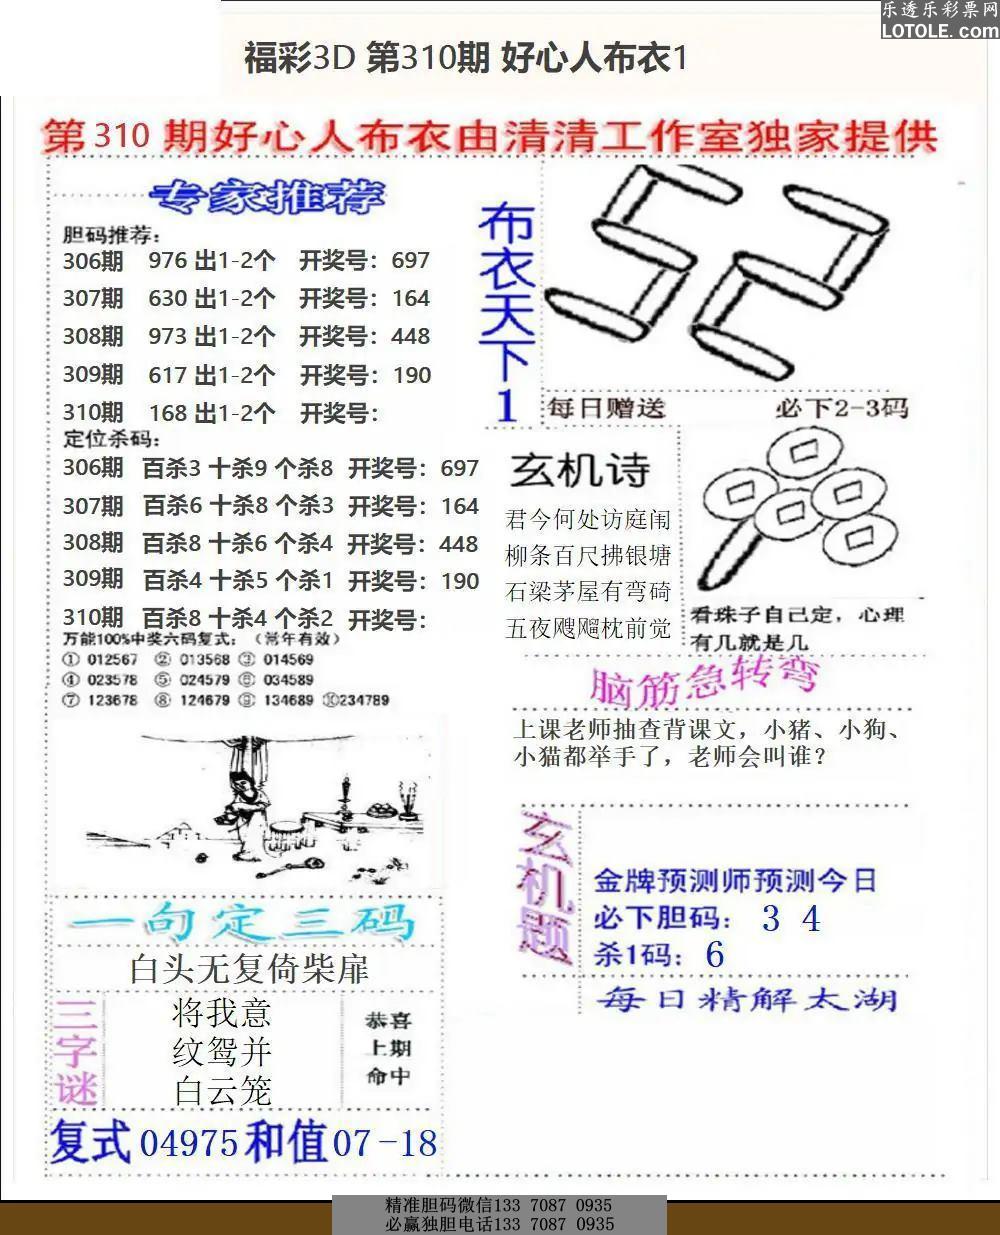 乐透乐彩票网
LOTOLE.com
福彩3D 第310期 好心人布衣1
第 310 期好心人布衣由清清工作室独家提供
专家推荐
胆码推荐:
306期 976 出1-2个 开奖号: 697
307期 630 出1-2个 开奖号: 164
308期 973 出1-2个 开奖号: 448
309期 617 出1-2个 开奖号: 190
310期 168 出1-2个 开奖号:
定位杀码:
306期 百杀3 十杀9 个杀8 开奖号: 697
307期 百杀6 十杀8 个杀3 开奖号: 164
308期 百杀8 十杀6 个杀4 开奖号: 448
309期 百杀4 十杀5 个杀1 开奖号: 190
310期 百杀8 十杀4 个杀2 开奖号:
万能100%中奖六码复式: (常年有效)
① 012567 ② 013568 ③ 014569
④ 023578 ⑤ 024579 ⑥ 034589
⑦ 123678 ⑧ 124679 ⑨ 134689 ⑩234789
布衣天下1
52
每日赠送 必下2-3码
玄机诗
君今何处访庭闹
柳条百尺拂银塘
石梁茅屋有弯碕
五夜飕飗枕前觉
看珠子自己定，心理
有几就是几
脑筋急转弯
上课老师抽查背课文，小猪、小狗、
小猫都举手了，老师会叫谁？
玄机题
金牌预测师预测今日
必下胆码: 3 4
杀1码: 6
每日精解太湖
一句定三码
白头无复倚柴扉
三字谜
将我意
纹鸳并
白云笼
恭喜
上期
命中
复式 04975 和值 07-18
精准胆码微信133 7087 0935
必赢独胆电话133 7087 0935